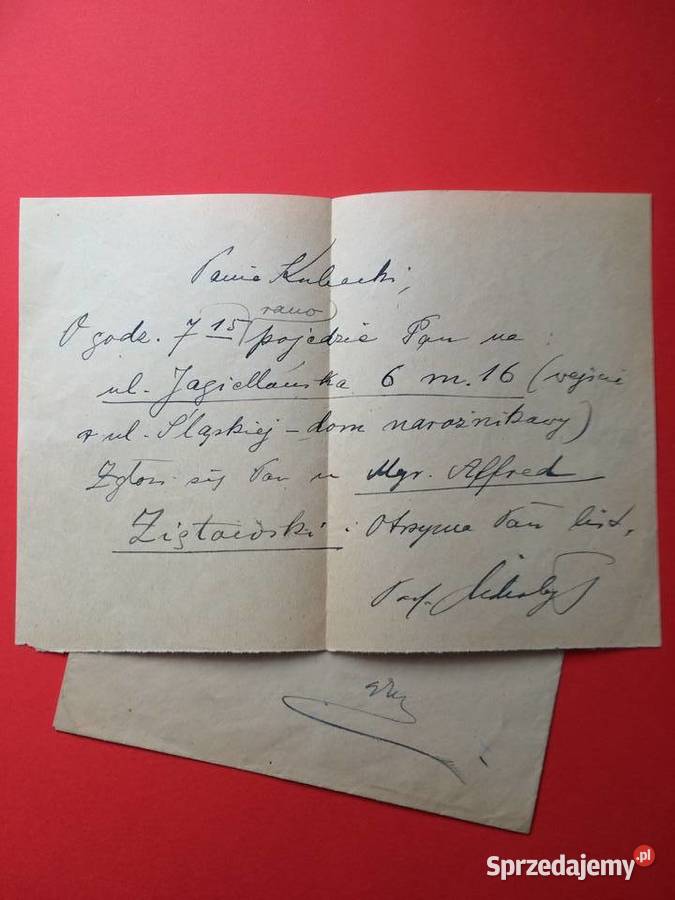 Panie Kubacki,
rano
O godz. 7 15 pojedzie Pan na
ul. Jagiellońska 6 m. 16 (wejście
z ul. Śląskiej - dom narożnikowy)
Zgłosi się Pan u Mgr. Alfred
Ziętowski i otrzyma Pan list.
Prof.
Sprzedajemy.pl